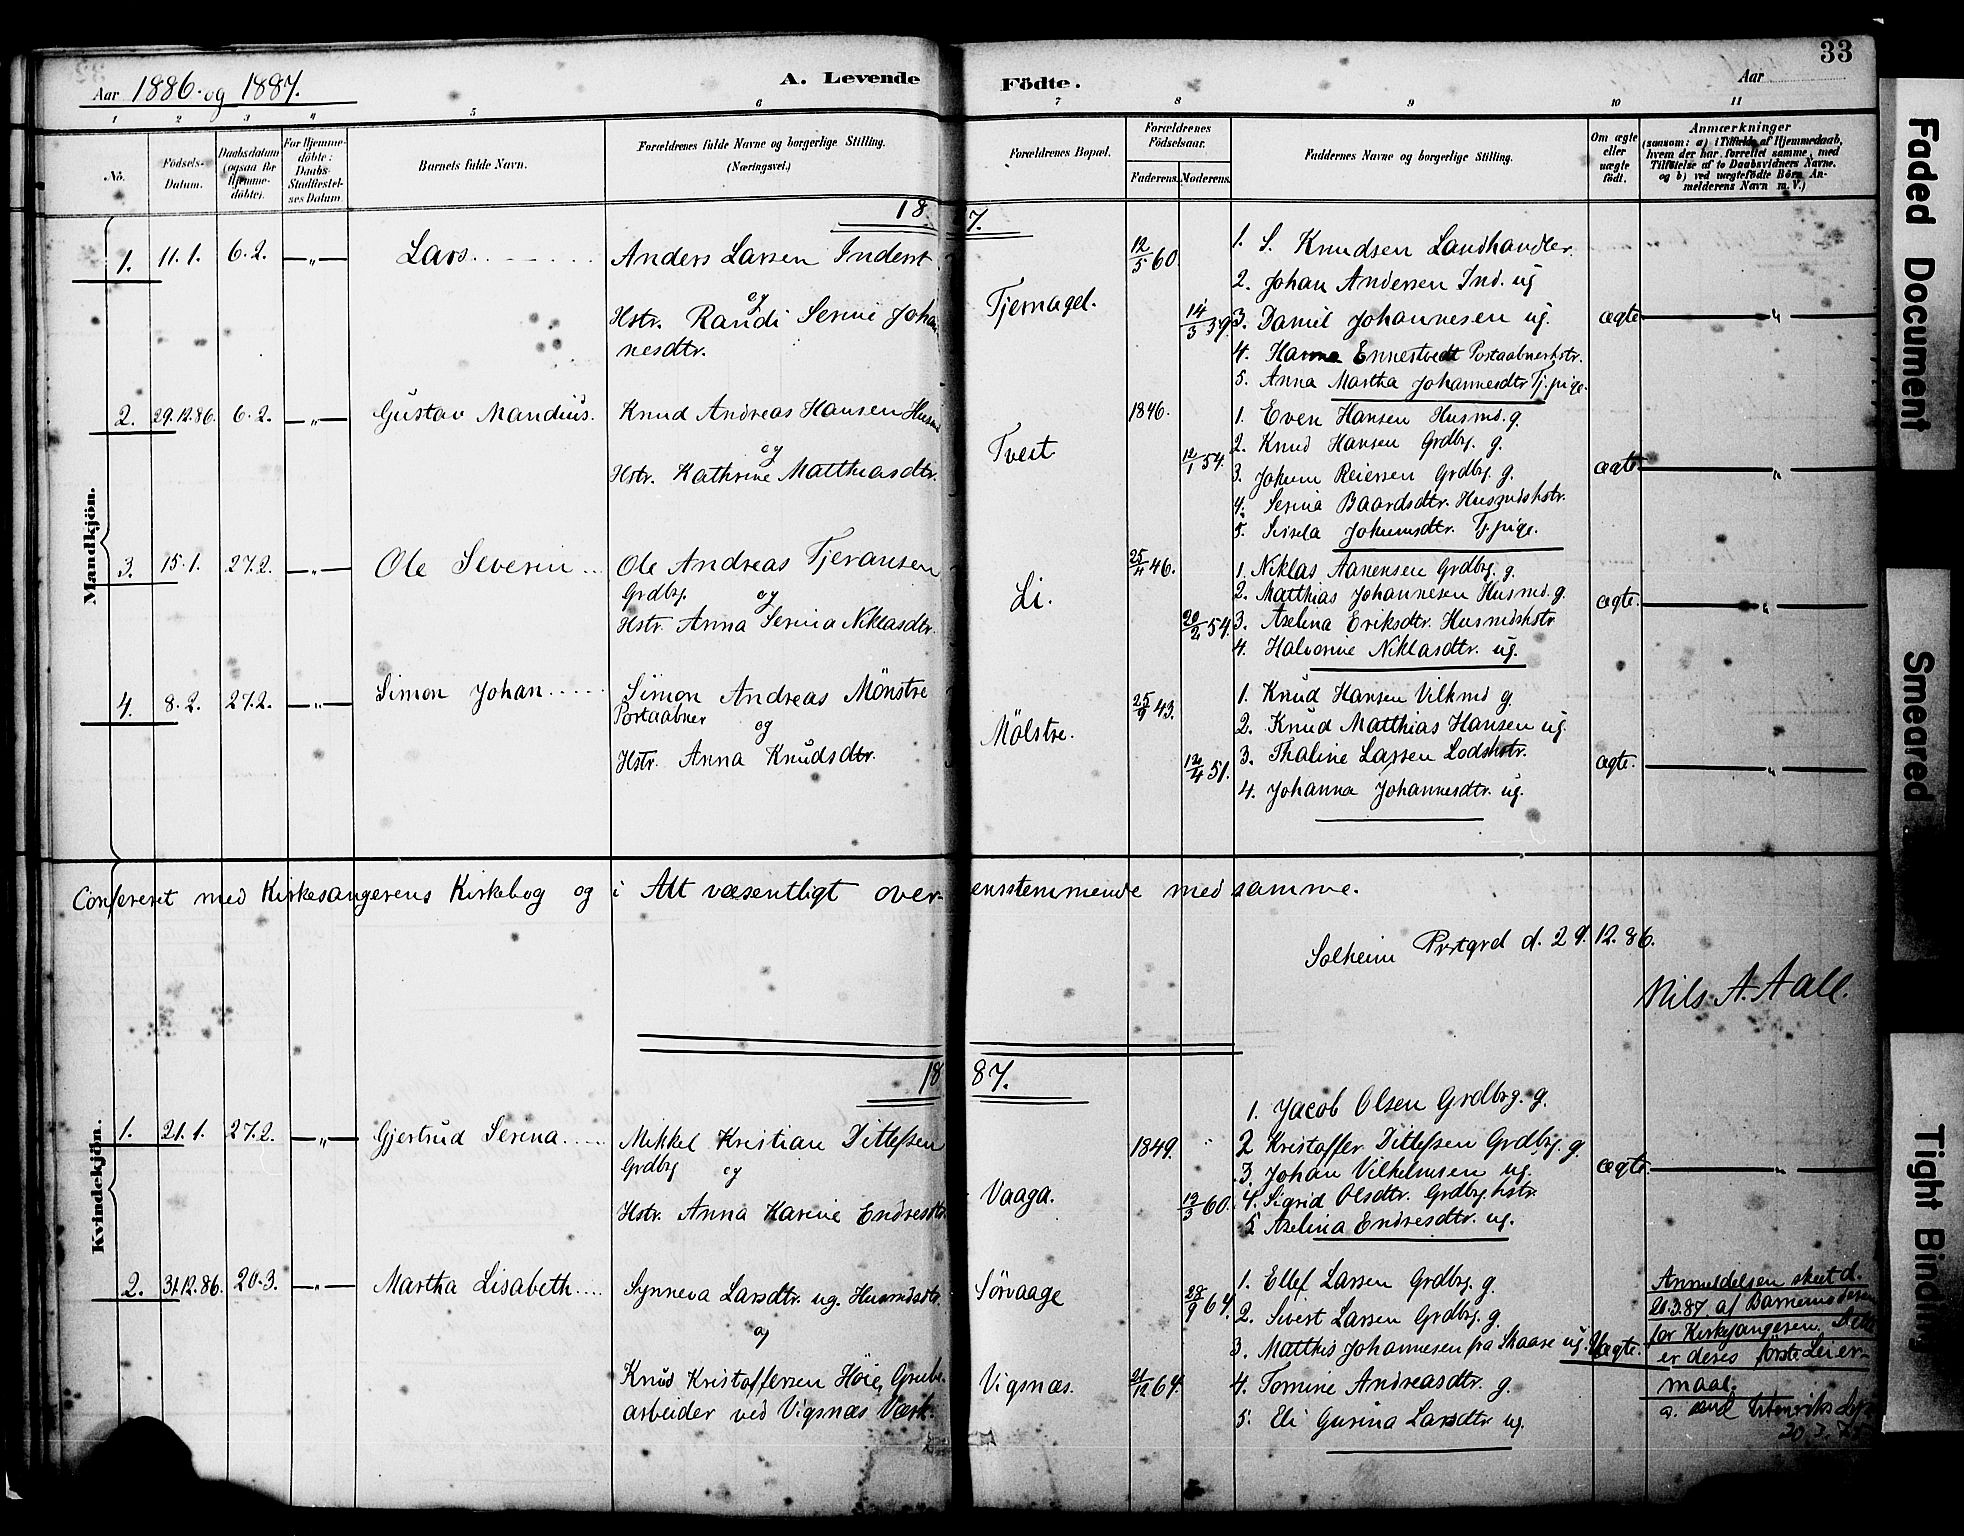 33
Aar 1886. og 1887. A. Levende Födte. Aar
1 2 3 4 5 6 7 8 9 10 11
No. Födsels-Datum. Daabsdatum (ogsaa for Hjemme-döbte). For Hjemme-döbte: Daabs-Stadfæstel-ses Datum. Barnets fulde Navn. Forældrenes fulde Navne og borgerlige Stilling. (Næringsvei.) Forældrenes Bopæl. Forældrenes Födselsaar. Faderens. Moderens. Faddernes Navne og borgerlige Stilling. Om ægte eller uægte födt. Anmærkninger
(saasom: a) i Tilfælde af Hjemmedaab, hvem der har forrettet samme, med Tilföielse af to Daabsvidners Navne, og b) ved uægtefödte Börn Anmelderens Navn m. V.)
Mandkjön.
18 7.
1. 11.1. 6.2. —„— Lars Anders Larsen Inderst
og
Hstr. Randi Serine Johan
nesdtr.
Tjernagel. 12/5 60. 14/3 39.
1. S. Knudsen Landhandler.
2. Johan Andersen Ind. ug
3. Daniel Johannesen ug.
4. Hanna Ennestvedt Postaabnerhstr.
5. Anna Martha Johannesdtr Tj.pige.
ægte —„—
2. 29.12.86. 6.2. —„— Gustav Mandius. Knud Andreas Hansen Husmd
og
Hstr. Kathrine Matthiasdtr.
Tveit 1846. 12/1 54.
1. Even Hansen Husmd. g
2. Knud Hansen Grdbrg. g.
3. Jokum Reiersen Grdbrg. g.
4. Serina Baardsdtr. Husmdshstr.
5. Sissela Jokumsdtr. Tj.pige.
ægte. —„—
3. 15.1. 27.2. —„— Ole Severin Ole Andreas Tjeransen
Grdbrg. og
Hstr. Anna Serina Niklasdtr.
Li. 25/4 46. 20/2 54.
1. Niklas Aanensen Grdbrg. g.
2. Matthias Johannesen Husmd. g.
3. Axelina Eriksdtr. Husmdshstr
4. Halvorine Niklasdtr. ug.
ægte. —„—
4. 8.2. 27.2. —„— Simon Johan Simon Andreas Mönstre
Postaabner og
Hstr. Anna Knudsdtr.
Mölstre. 25/9 43. 12/4 51.
1. Knud Hansen Vilknd g.
2. Knud Matthias Hansen ug.
3. Thaline Larsen Lodshstr.
4. Johanna Johannesdtr. ug.
ægte. —„—
Confereret med Kirkesangerens Kirkebog og i Alt væsentligt overensstemmende med samme.
Solheim Prstgrd d. 29.12.86.
Nils A. Aall.
18 87.
Kvindekjön.
1. 21.1. 27.2. —„— Gjertrud Serina Mikkel Kristian Ditlefsen
Grdbrg og
Hstr. Anna Karine Endresdtr.
Vaaga. 1849. 12/3 60.
1. Jacob Olsen Grdbrg. g.
2 Kristoffer Ditlefsen Grdbrg. g
3. Johan Vilhelmsen ug.
4. Sigrid Olsdtr. Grdbrghstr.
5. Axelina Endresdtr. ug.
ægte. —„—
2. 31.12.86. 20.3. —„— Martha Lisabeth Synneva Larsdtr. ug. Husmdsdtr.
og
Knud Kristoffersen Höie, Grube
arbeider ved Vigsnæs Værk.
Sörvaage
Vigsnæs. 21/12 64. 28/9 64.
1. Ellef Larsen Grdbrg. g.
2. Sivert Larsen Grdbrg. g.
3. Matthis Johannesen fra Skaare ug.
4. Tomine Andreasdtr. g.
5. Eli Gurina Larsdtr ug.
Uægte.
Anmeldelsen skeet d.
20.3.87 af Barnemoderen
for Kirkesangeren. Dette
er deres förste Leier-
maal.
Faded Document
Smeared
Tight Binding